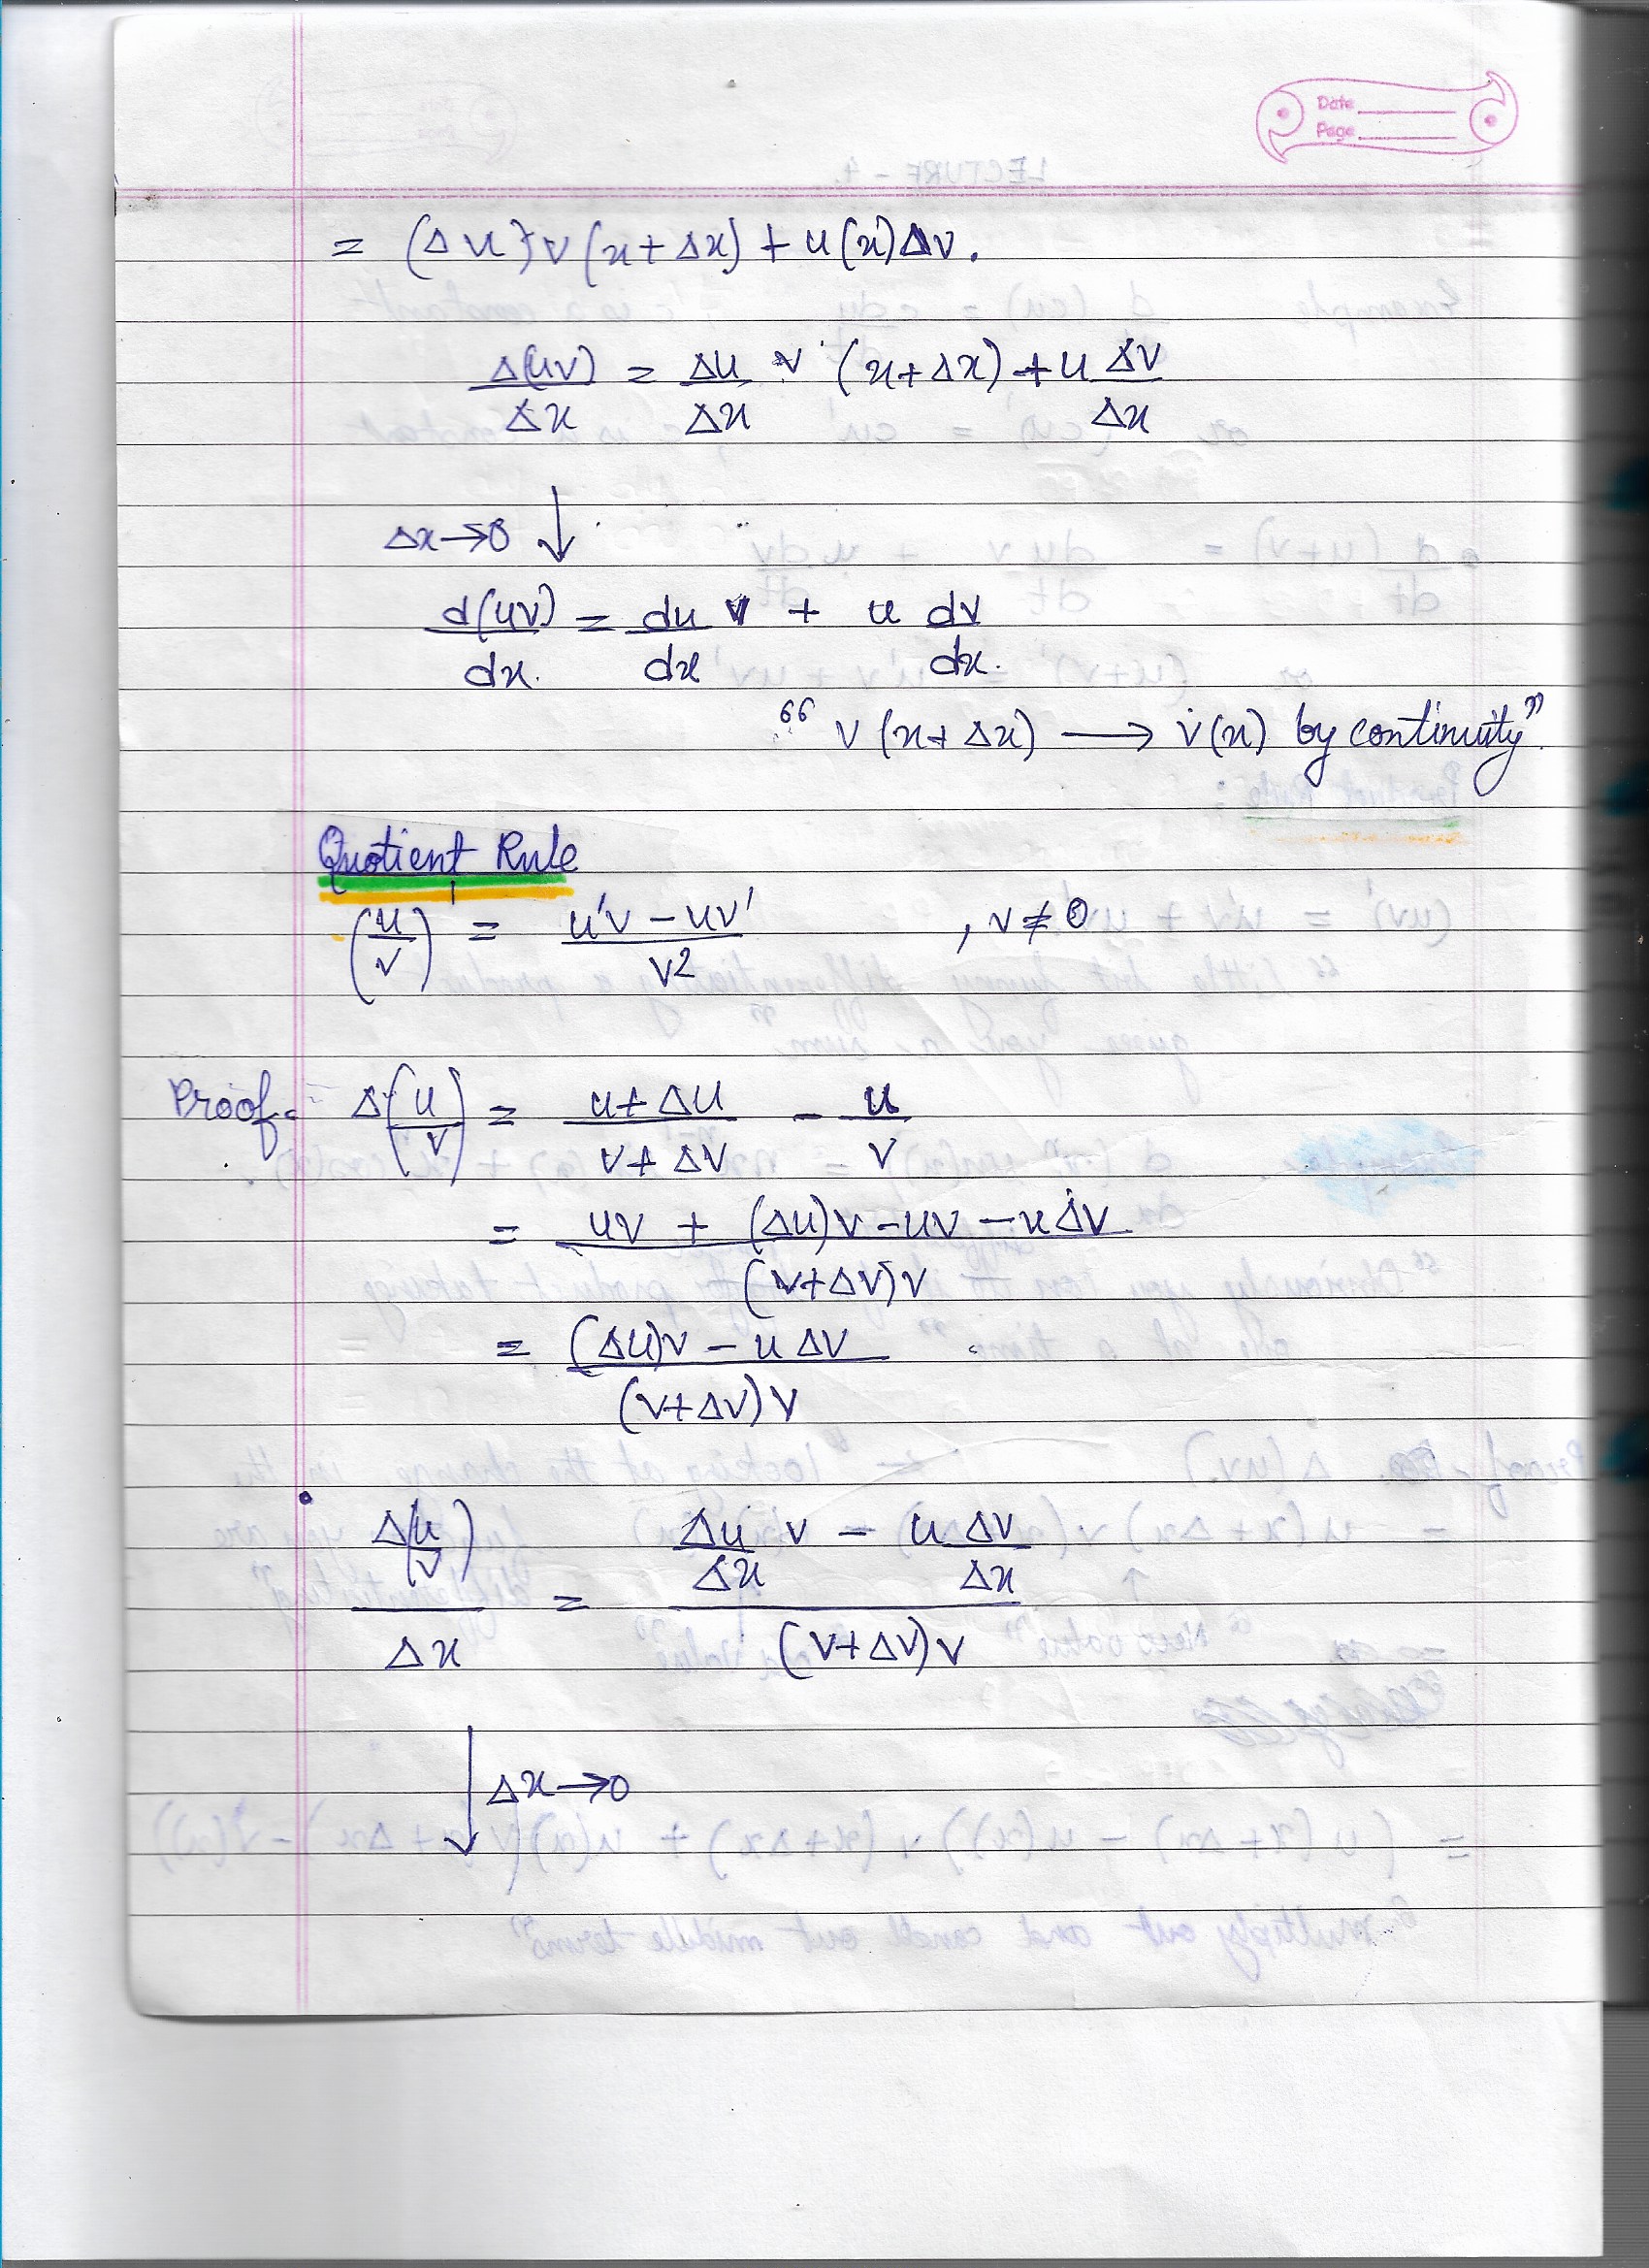 Date
Page
= (Δu) v(x+Δx) + u(x)Δv.
Δ(uv)/Δx = Δu/Δx v (x+Δx) + u Δv/Δx
Δx→0 ↓
d(uv)/dx. = du/dx v + u dv/dx.
“ v(x+Δx) ⟶ v(x) by continuity”.
Quotient Rule
(u/v)' = u'v - uv'/v² , v ≠ 0
Proof- Δ(u/v) = u+Δu/v+Δv - u/v
= uv + (Δu)v - uv - uΔv/(v+Δv)v
= (Δu)v - uΔv/(v+Δv)v
Δ(u/v)/Δx = Δu/Δx v - u Δv/Δx/(v+Δv)v
↓ Δx→0